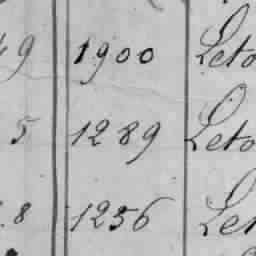 9 1900 Leto
5 1289 Leto
8 1256